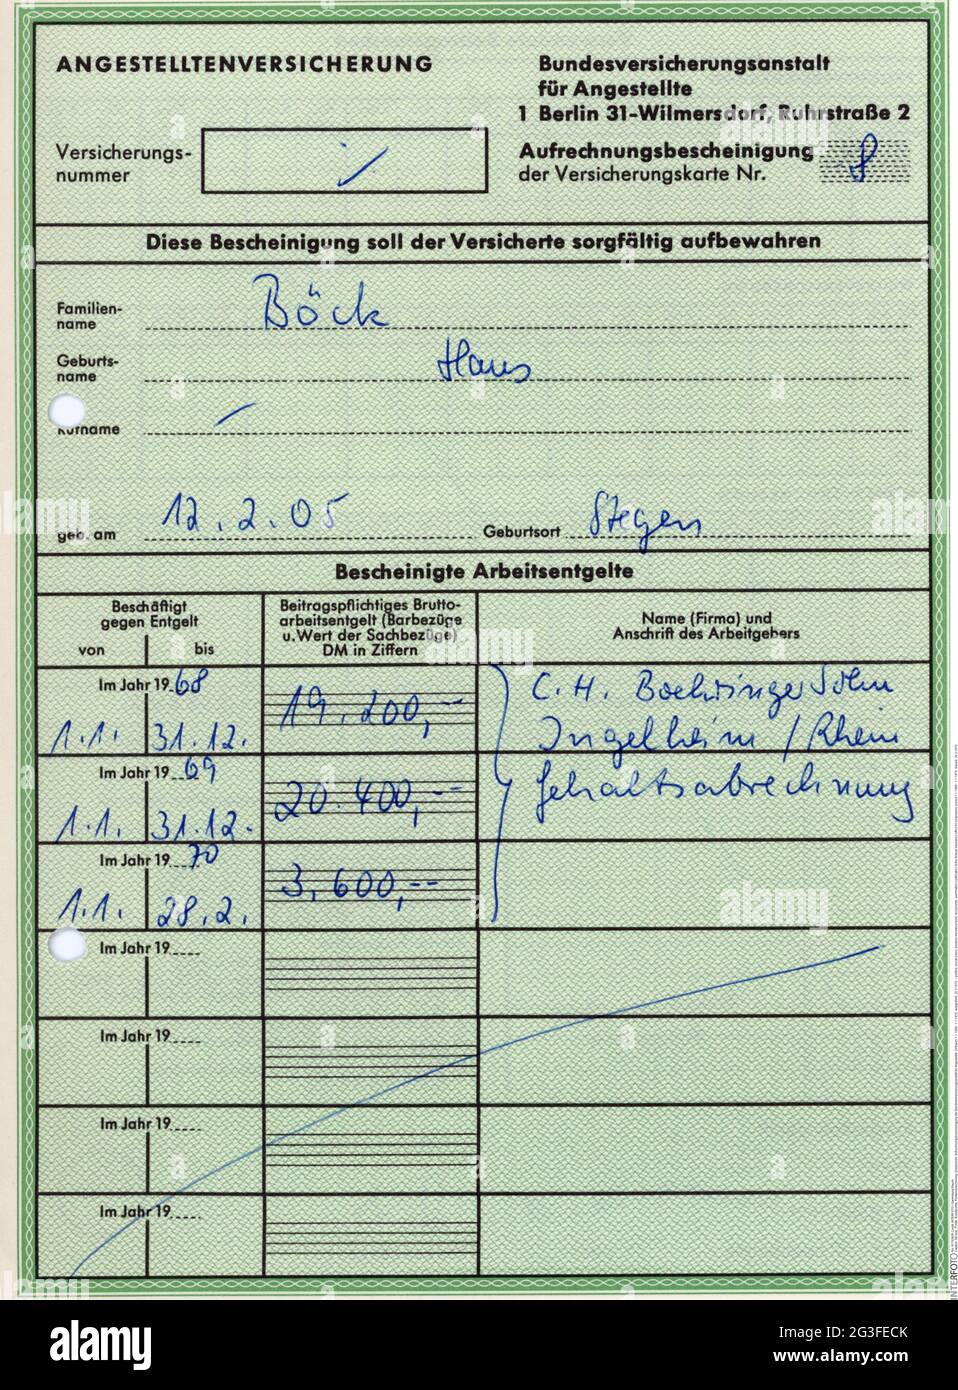 ANGESTELLTENVERSICHERUNG
Bundesversicherungsanstalt
für Angestellte
1 Berlin 31-Wilmersdorf, Ruhrstraße 2
Versicherungs-
nummer
Aufrechnungsbescheinigung
der Versicherungskarte Nr. 8
Diese Bescheinigung soll der Versicherte sorgfältig aufbewahren
Familien-
name Böck
Geburts-
name Hans
Rufname
geb. am 12.2.05 Geburtsort Stegen
Bescheinigte Arbeitsentgelte
Beschäftigt
gegen Entgelt
von bis
Beitragspflichtiges Brutto-
arbeitsentgelt (Barbezüge
u. Wert der Sachbezüge)
DM in Ziffern
Name (Firma) und
Anschrift des Arbeitgebers
Im Jahr 19 68
1.1. 31.12. 19.200,--
C. H. Boehringer Sohn
Ingelheim / Rhein
Gehaltsabrechnung
Im Jahr 19 69
1.1. 31.12. 20.400,--
Im Jahr 19 70
1.1. 28.2. 3.600,--
Im Jahr 19
Im Jahr 19
Im Jahr 19
Im Jahr 19
alamy
INTERFOTO
alamy
Image ID: 2G3FECK
www.alamy.com